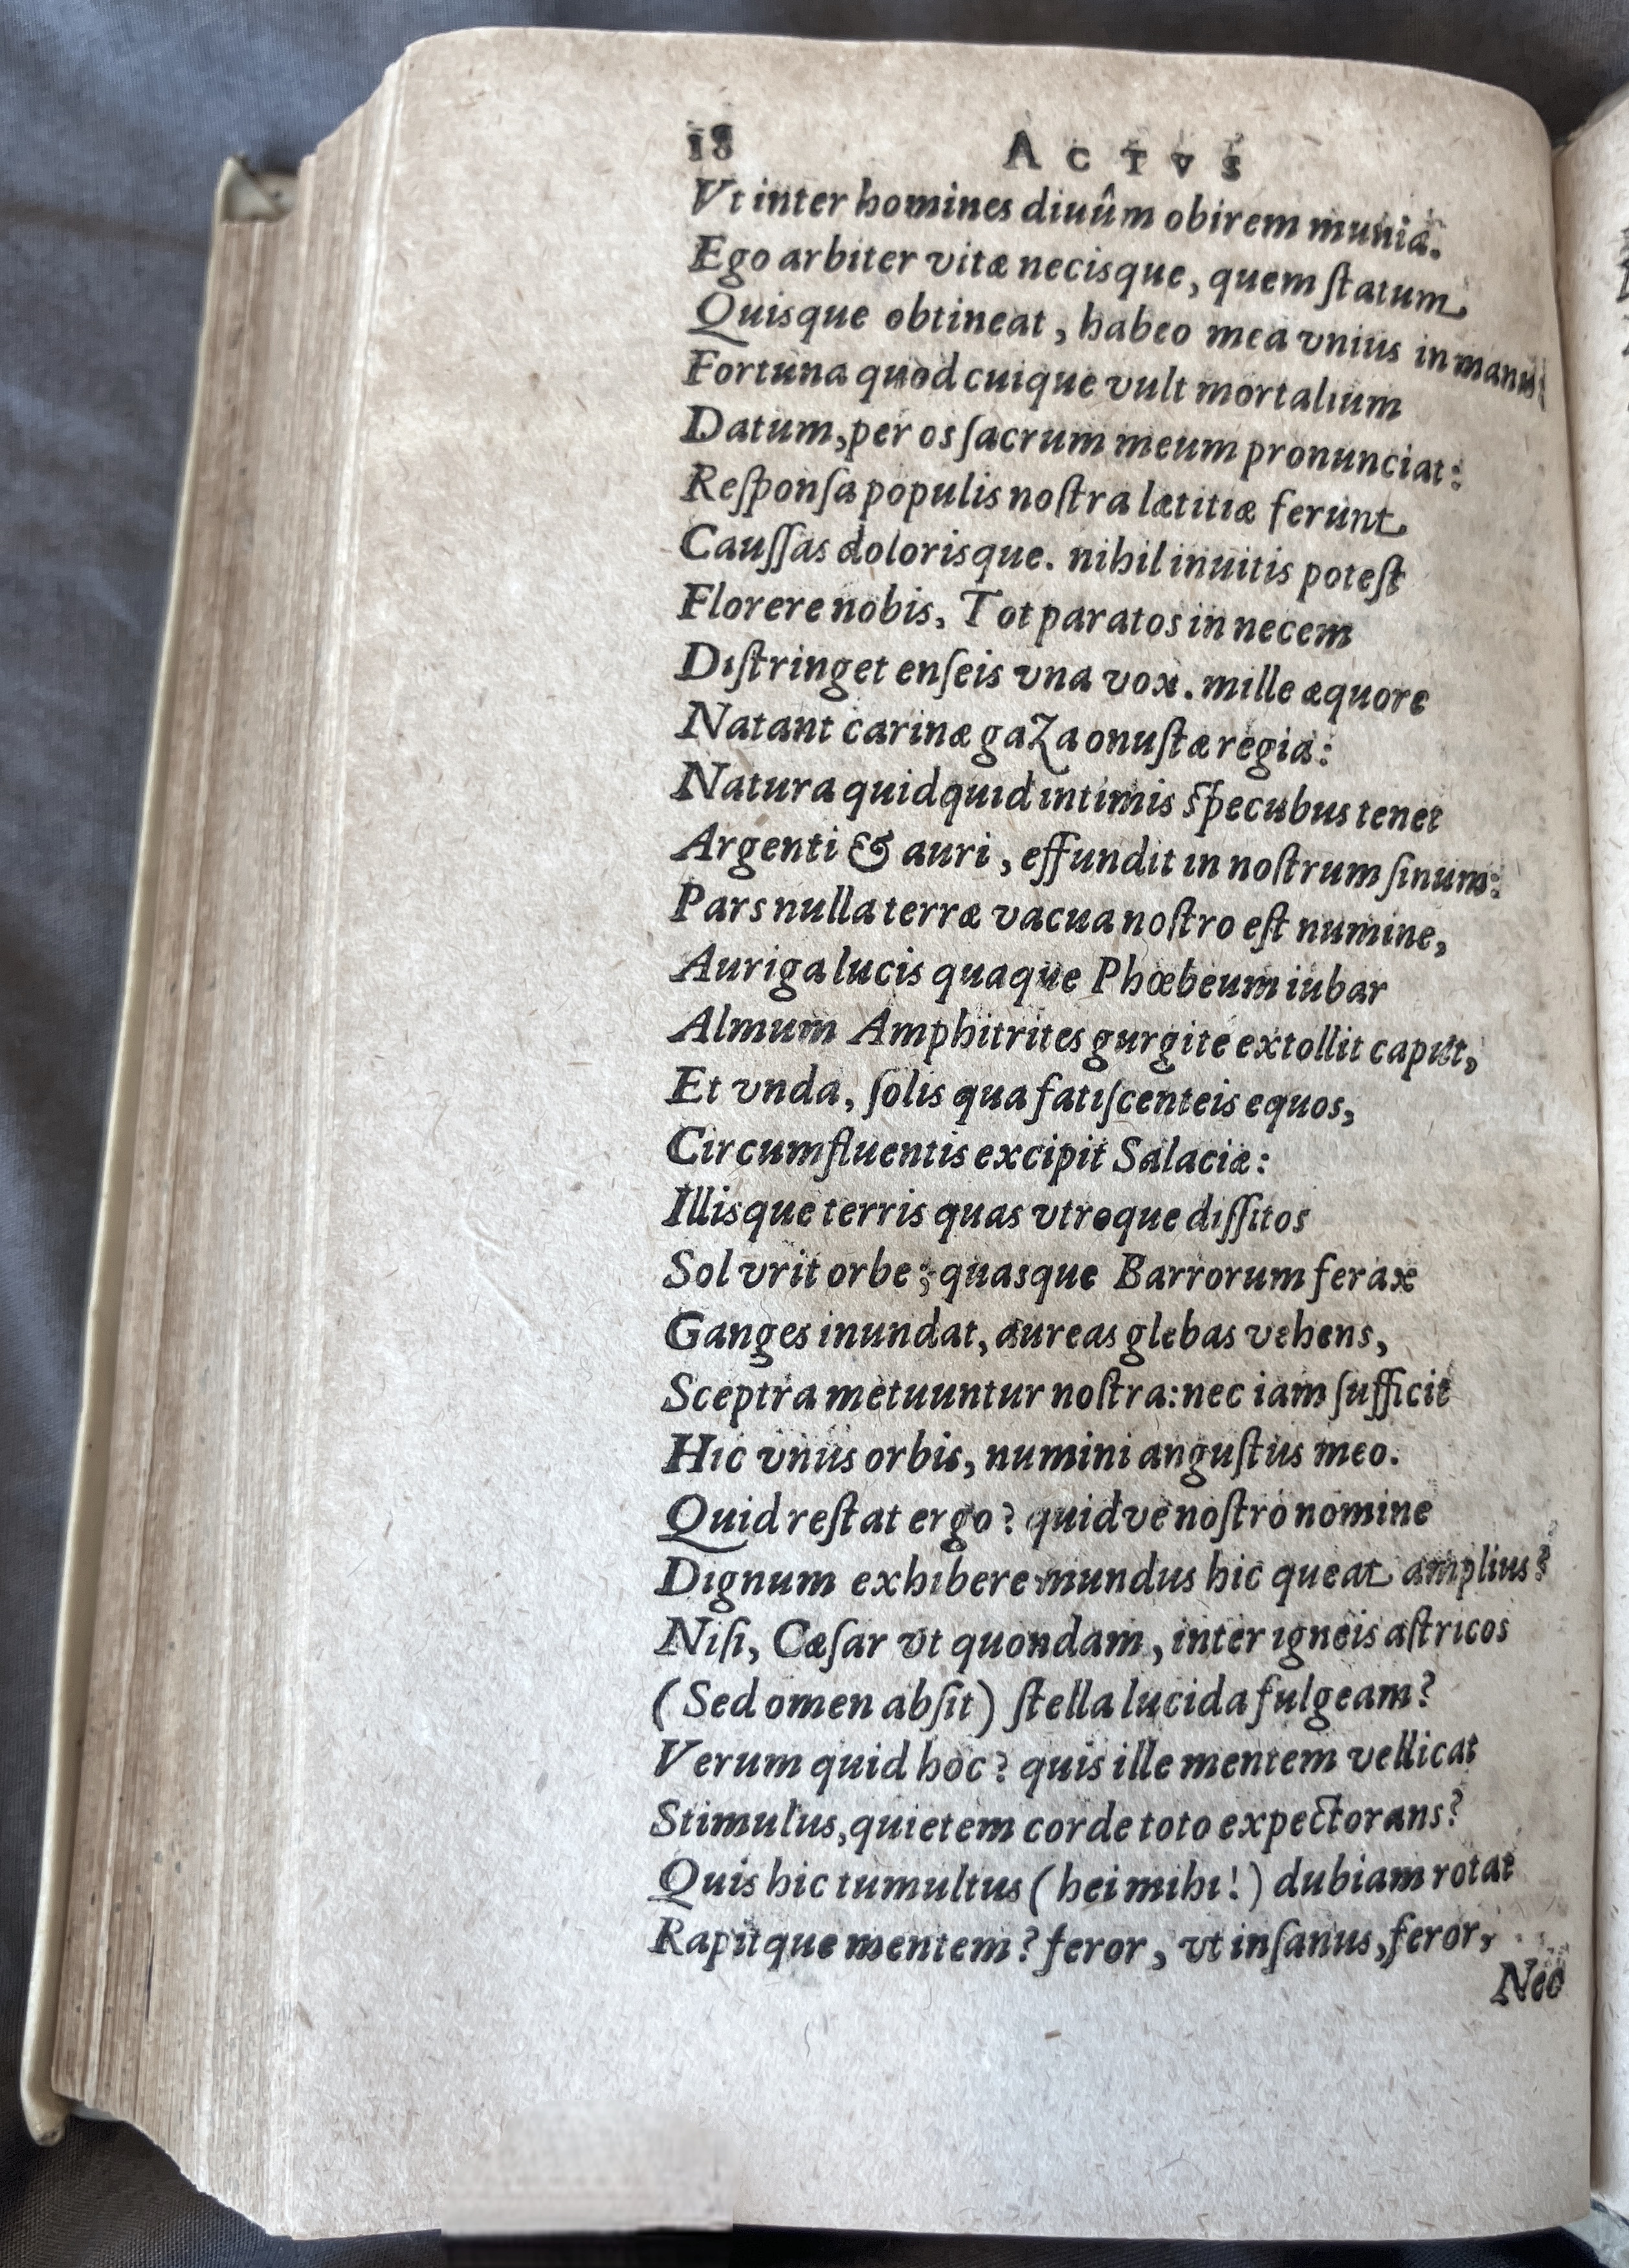 18 ACTVS
Vt inter homines diuûm obirem munia.
Ego arbiter vitæ necisque, quem ſtatum
Quisque obtineat, habeo mea vnius in manu:
Fortuna quod cuique vult mortalium
Datum, per os ſacrum meum pronunciat:
Reſponſa populis noſtra lætitiæ ferunt
Cauſſas dolorisque. nihil inuitis poteſt
Florere nobis, Tot paratos in necem
Diſtringet enſeis vna vox. mille æquore
Natant carinæ gaza onuſtæ regia:
Natura quidquid intimis ſpecubus tenet
Argenti & auri, effundit in noſtrum ſinum:
Pars nulla terræ vacua noſtro eſt numine,
Auriga lucis quaque Phœbeum iubar
Almum Amphitrites gurgite extollit caput,
Et vnda, ſolis qua fatiſcenteis equos,
Circumfluentis excipit Salaciæ:
Illisque terris quas vtroque diſſitos
Sol vrit orbe; quasque Barrorum ferax
Ganges inundat, aureas glebas vehens,
Sceptra metuuntur noſtra: nec iam ſufficit
Hic vnus orbis, numini anguſtus meo.
Quid reſtat ergo? quidve noſtro nomine
Dignum exhibere mundus hic queat amplius?
Niſi, Cæſar vt quondam, inter igneis aſtricos
(Sed omen abſit) ſtella lucida fulgeam?
Verum quid hoc? quis ille mentem vellicat
Stimulus, quietem corde toto expectorans?
Quis hic tumultus (hei mihi!) dubiam rotat
Rapitque mentem? feror, vt inſanus, feror,
Nec